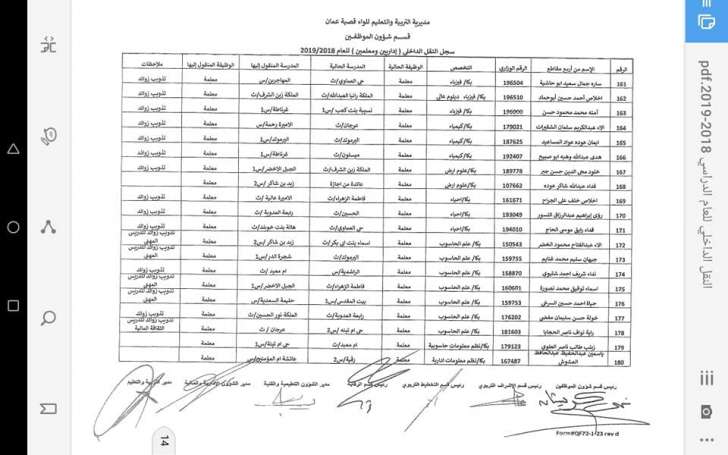 مديرية التربية والتعليم للواء قصبة عمان
قسم شؤون الموظفين
سجل النقل الداخلي ( إداريين ومعلمين ) للعام 2019/2018
الرقم الإسم من أربع مقاطع الرقم الوزاري التخصص الوظيفة الحالية المدرسة الحالية المدرسة المنقول إليها الوظيفة المنقول إليها ملاحظات
161 ساره جمال سعيد ابو حاشية 196504 بكا/ فيزياء معلمة حي العماوي/ث المهاجرين/س معلمة تذويب زوائد
162 اخلاص أحمد حسين أبوحماد 196510 بكا/ فيزياء دبلوم عالي معلمة الملكة رانيا العبدالله/ث الملكة زين الشرف/ث معلمة تذويب زوائد
163 آمنه محمد محمود حسن بكا/ فيزياء معلمة نسيبة بنت كعب /س1 غرناطة/س1 معلمة تذويب زوائد
164 الاء عبدالكريم سلمان الشقيرات 179021 بكا/كيمياء معلمة عرجان/ث الاميرة رحمة/س معلمة تذويب زوائد
165 ايمان عوده عواد المساعيد 187625 بكا/كيمياء معلمة اليرموك/ث اليرموك/س1 معلمة تذويب زوائد
166 هدى عبدالله وهبه ابو صبيح 192407 بكا/كيمياء معلمة ميسلون/ث غرناطة/س1 معلمة تذويب زوائد
167 خلود محي الدين حسن جبر 189778 بكا/علوم ارض معلمة الملكة زين الشرف/ث الجبل الاخضر/س1 معلمة تذويب زوائد
168 فداء عبدالله شاكر عوده 107662 بكا/علوم ارض معلمة عائدة من اجازة زيد بن شاكر /س2 معلمة
169 اخلاص خلف علي الجراح 161671 بكا/احياء معلمة فاطمة الزهراء/ث الاميرة عالية /ث معلمة تذويب زوائد
170 رؤى إبراهيم عبدالرزاق النسور 193049 بكا/احياء معلمة الحسين/ث رابعة العدوية /ث معلمة تذويب زوائد
171 فداء رايق موسى الحاج 194010 بكا/احياء معلمة حي العماوي/ث هالة بنت خويلد/ث معلمة تذويب زوائد
172 الاء عبدالفتاح محمود الخضر 150543 بكا/ علم الحاسوب معلمة اسماء بنت ابي بكر/ث زيد بن شاكر /س2 معلمة تذويب زوائد للتدريس المهني
173 جيهان سليم محمد غنايم 159755 بكا/ علم الحاسوب معلمة اليرموك/ث شجرة الدر/س1 معلمة
174 نداء شريف احمد شليوي 158870 بكا/ علم الحاسوب معلمة الراشدية/س ام معبد /ث معلمة تذويب زوائد
175 اسماء توفيق محمد نصورة 160601 بكا/ علم الحاسوب معلمة فاطمة الزهراء/ث الجبل الاخضر/س1 معلمة تذويب زوائد للتدريس المهني
176 حياة احمد حسين السرخي 159753 بكا/ علم الحاسوب معلمة بيت المقدس/س1 حليمة السعدية/س معلمة تذويب زوائد للتدريس المهني
177 خولة حسن سليمان مفلح 176202 بكا/ علم الحاسوب معلمة رابعة العدوية/ث الملكة نور الحسين/ث معلمة تذويب زوائد
178 راية نواف ناصر الحجايا 181603 بكا/ علم الحاسوب معلمة حي ام تينة /س2 عرجان / ث معلمة الثقافة المالية
179 زينب طالب ناصر العلوي 179123 بكا/نظم معلومات حاسوبية معلمة ام معبد/ث حي ام تينة/س1 معلمة
180 ياسمين عبدالحفيظ عبدالحافظ العشوش 167487 بكا/نظم معلومات ادارية معلمة رقية/س2 عائشة ام المؤمنين/س معلمة
رئيس قسم شؤون الموظفين رئيس قسم الإشراف التربوي رئيس قسم التخطيط التربوي رئيس قسم الرقابة مدير الشؤون التعليمية والفنية مدير الشؤون الإدارية والمالية مدير التربية والتعليم
Form#QF72-1-23 rev d
14
النقل الداخلي للعام الدراسي 2018-2019.pdf